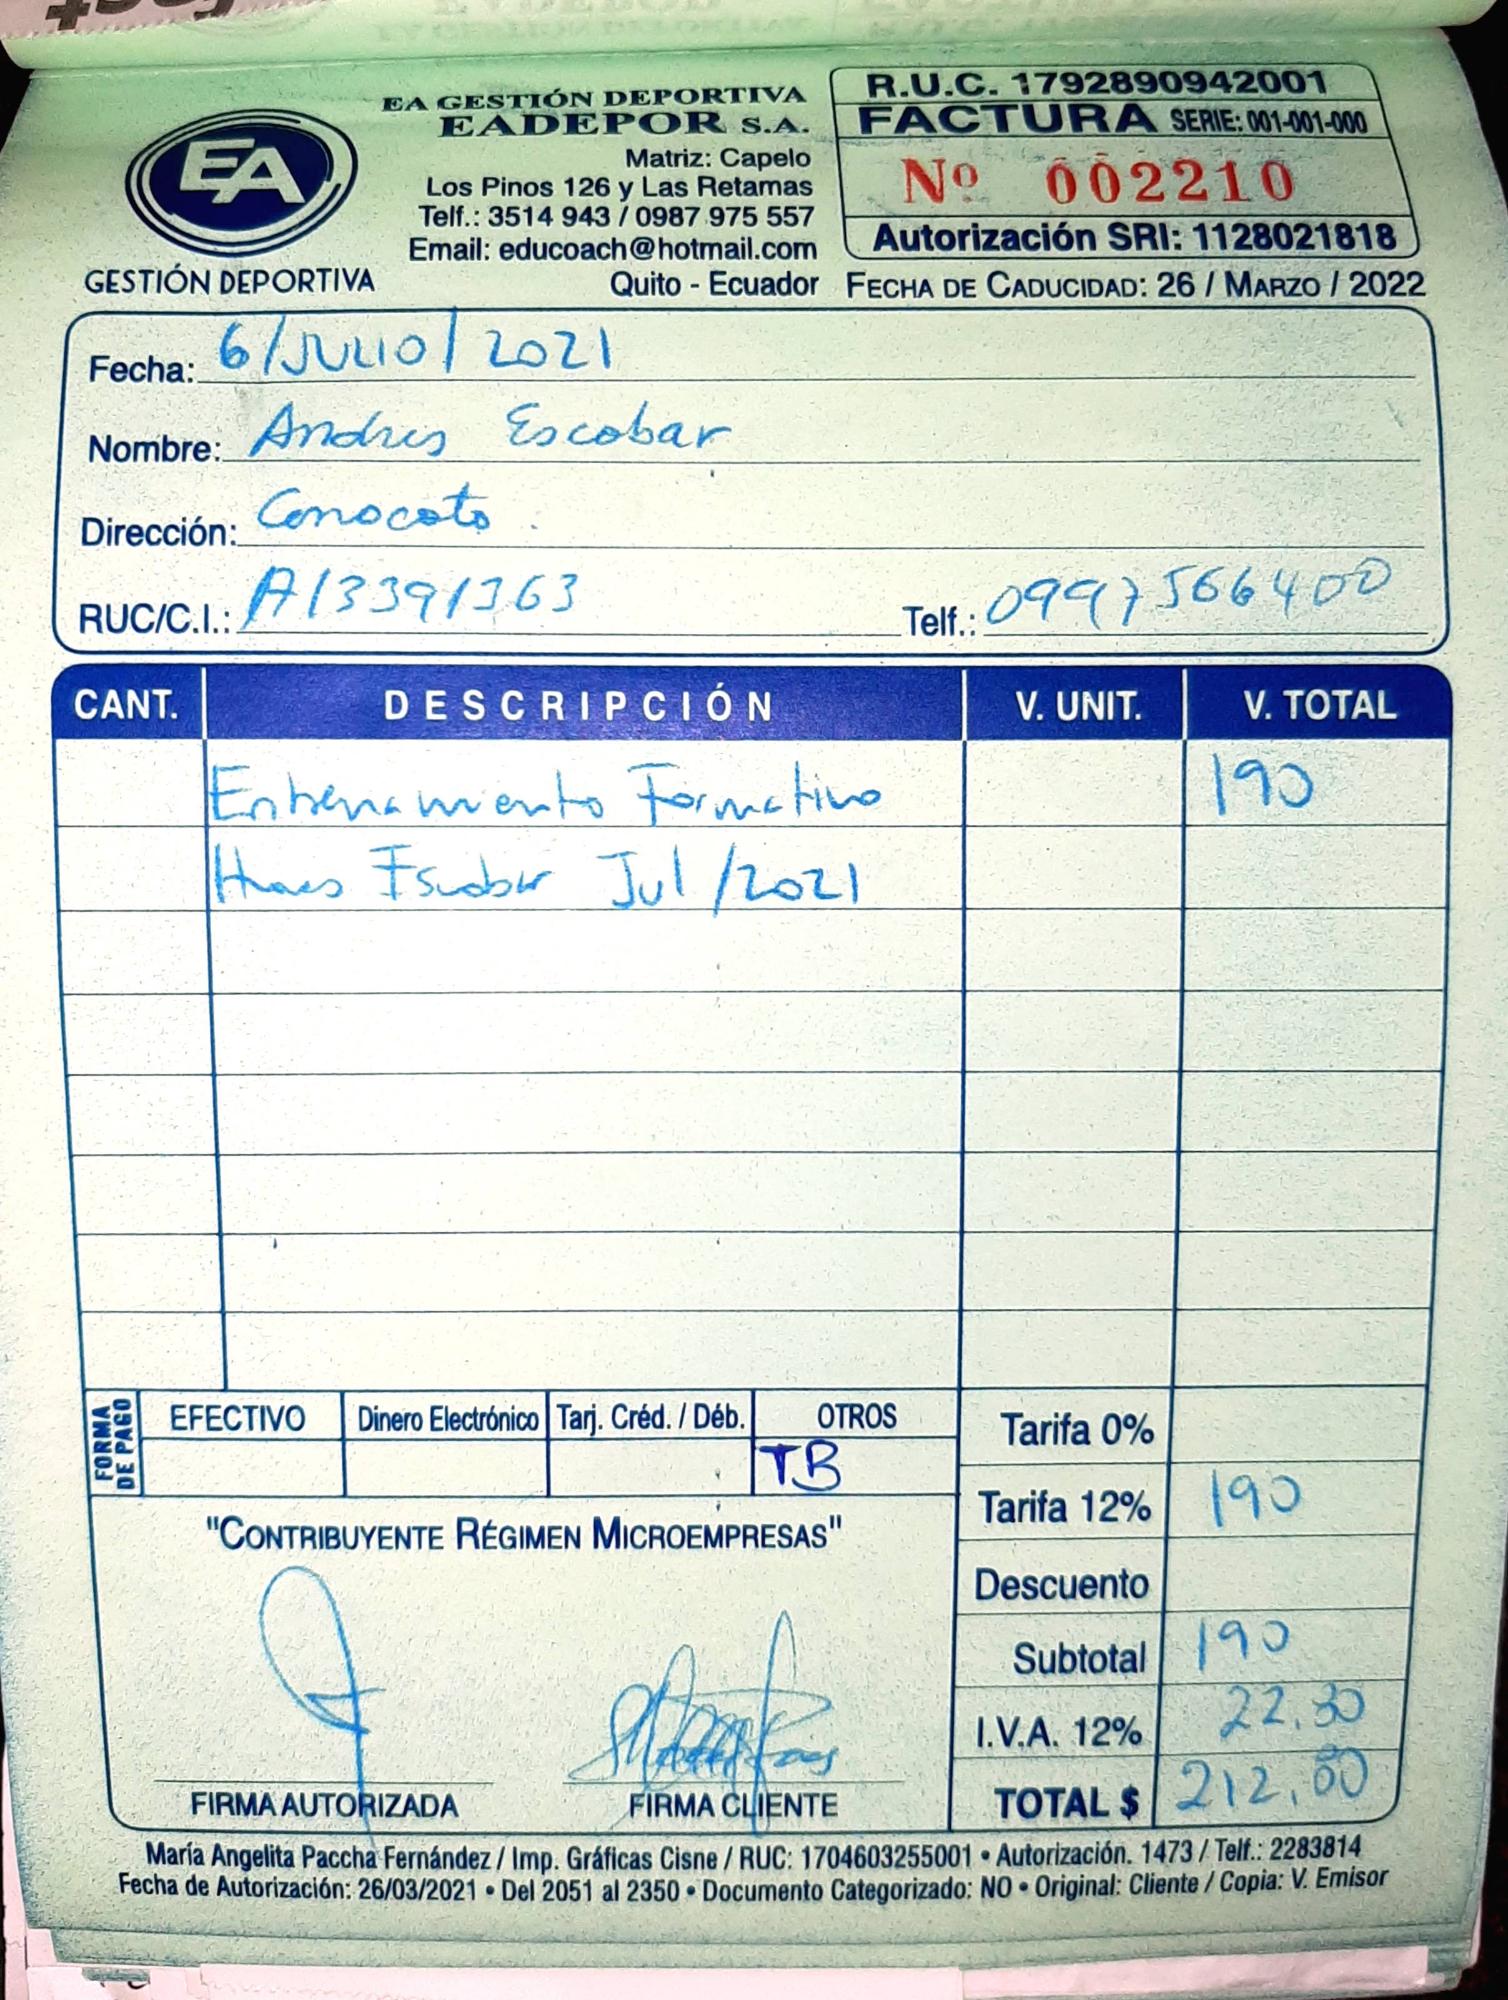 EA GESTIÓN DEPORTIVA
EADEPOR S.A.
Matriz: Capelo
Los Pinos 126 y Las Retamas
Telf.: 3514 943 / 0987 975 557
Email: educoach@hotmail.com
Quito - Ecuador
EA
GESTIÓN DEPORTIVA
R.U.C. 1792890942001
FACTURA SERIE: 001-001-000
Nº 002210
Autorización SRI: 1128021818
FECHA DE CADUCIDAD: 26 / MARZO / 2022
Fecha: 6/JULIO/2021
Nombre: Andres Escobar
Dirección: Conocoto.
RUC/C.I.: A13391363 Telf.: 0997566400
CANT. DESCRIPCIÓN V. UNIT. V. TOTAL
Entrenamiento Formativo 190
Escobar Jul/2021
FORMA DE PAGO
EFECTIVO Dinero Electrónico Tarj. Créd. / Déb. OTROS
TB
Tarifa 0%
Tarifa 12% 190
Descuento
Subtotal 190
I.V.A. 12% 22,80
TOTAL $ 212,80
"CONTRIBUYENTE RÉGIMEN MICROEMPRESAS"
FIRMA AUTORIZADA FIRMA CLIENTE
María Angelita Paccha Fernández / Imp. Gráficas Cisne / RUC: 1704603255001 • Autorización. 1473 / Telf.: 2283814
Fecha de Autorización: 26/03/2021 • Del 2051 al 2350 • Documento Categorizado: NO • Original: Cliente / Copia: V. Emisor